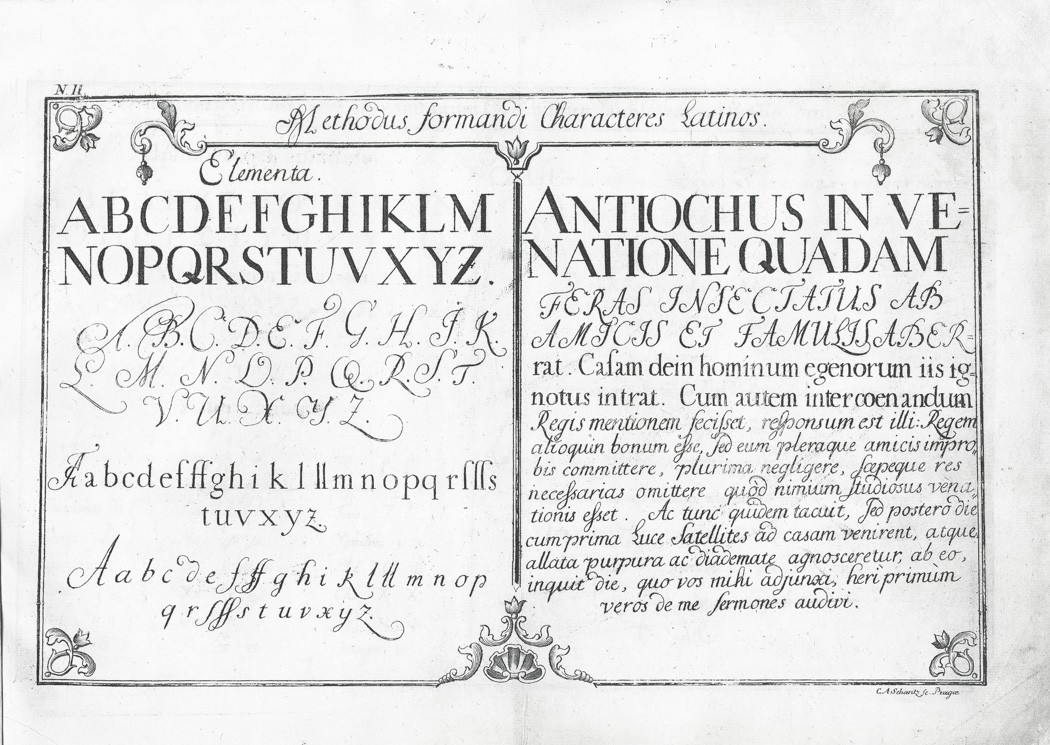 N II.
Methodus formandi Characteres Latinos.
Elementa.
ABCDEFGHIKLM
NOPQRSTUVXYZ.
A. B. C. D. E. F. G. H. I. K.
L. M. N. O. P. Q. R. S. T.
V. U. X. Y. Z.
Aabcdefffghiklllmnopqrſſſs
tuvxyz
Aabcdefffghiklllmnop
qrſſſstuvxyz.
ANTIOCHUS IN VE=
NATIONE QUADAM
FERAS INSECTATUS AB
AMICIS ET FAMULIS ABER=
rat. Caſam dein hominum egenorum iis ig=
notus intrat. Cum autem inter coenandum
Regis mentionem feciſſet, reſponsum est illi: Regem
alioquin bonum eſſe, ſed eum pleraque amicis impro„
bis committere, plurima negligere, sæpeque res
neceſsarias omittere quod nimium ſtudiosus vena„
tionis eſset. Ac tunc quidem tacuit, ſed postero die
cum prima Luce Satellites ad casam venirent, atque
allata purpura ac diademate agnosceretur, ab eo,
inquit die, quo vos mihi adjunxi, heri primùm
veros de me ſermones audivi.
C. A Schantz ſc. Pragæ